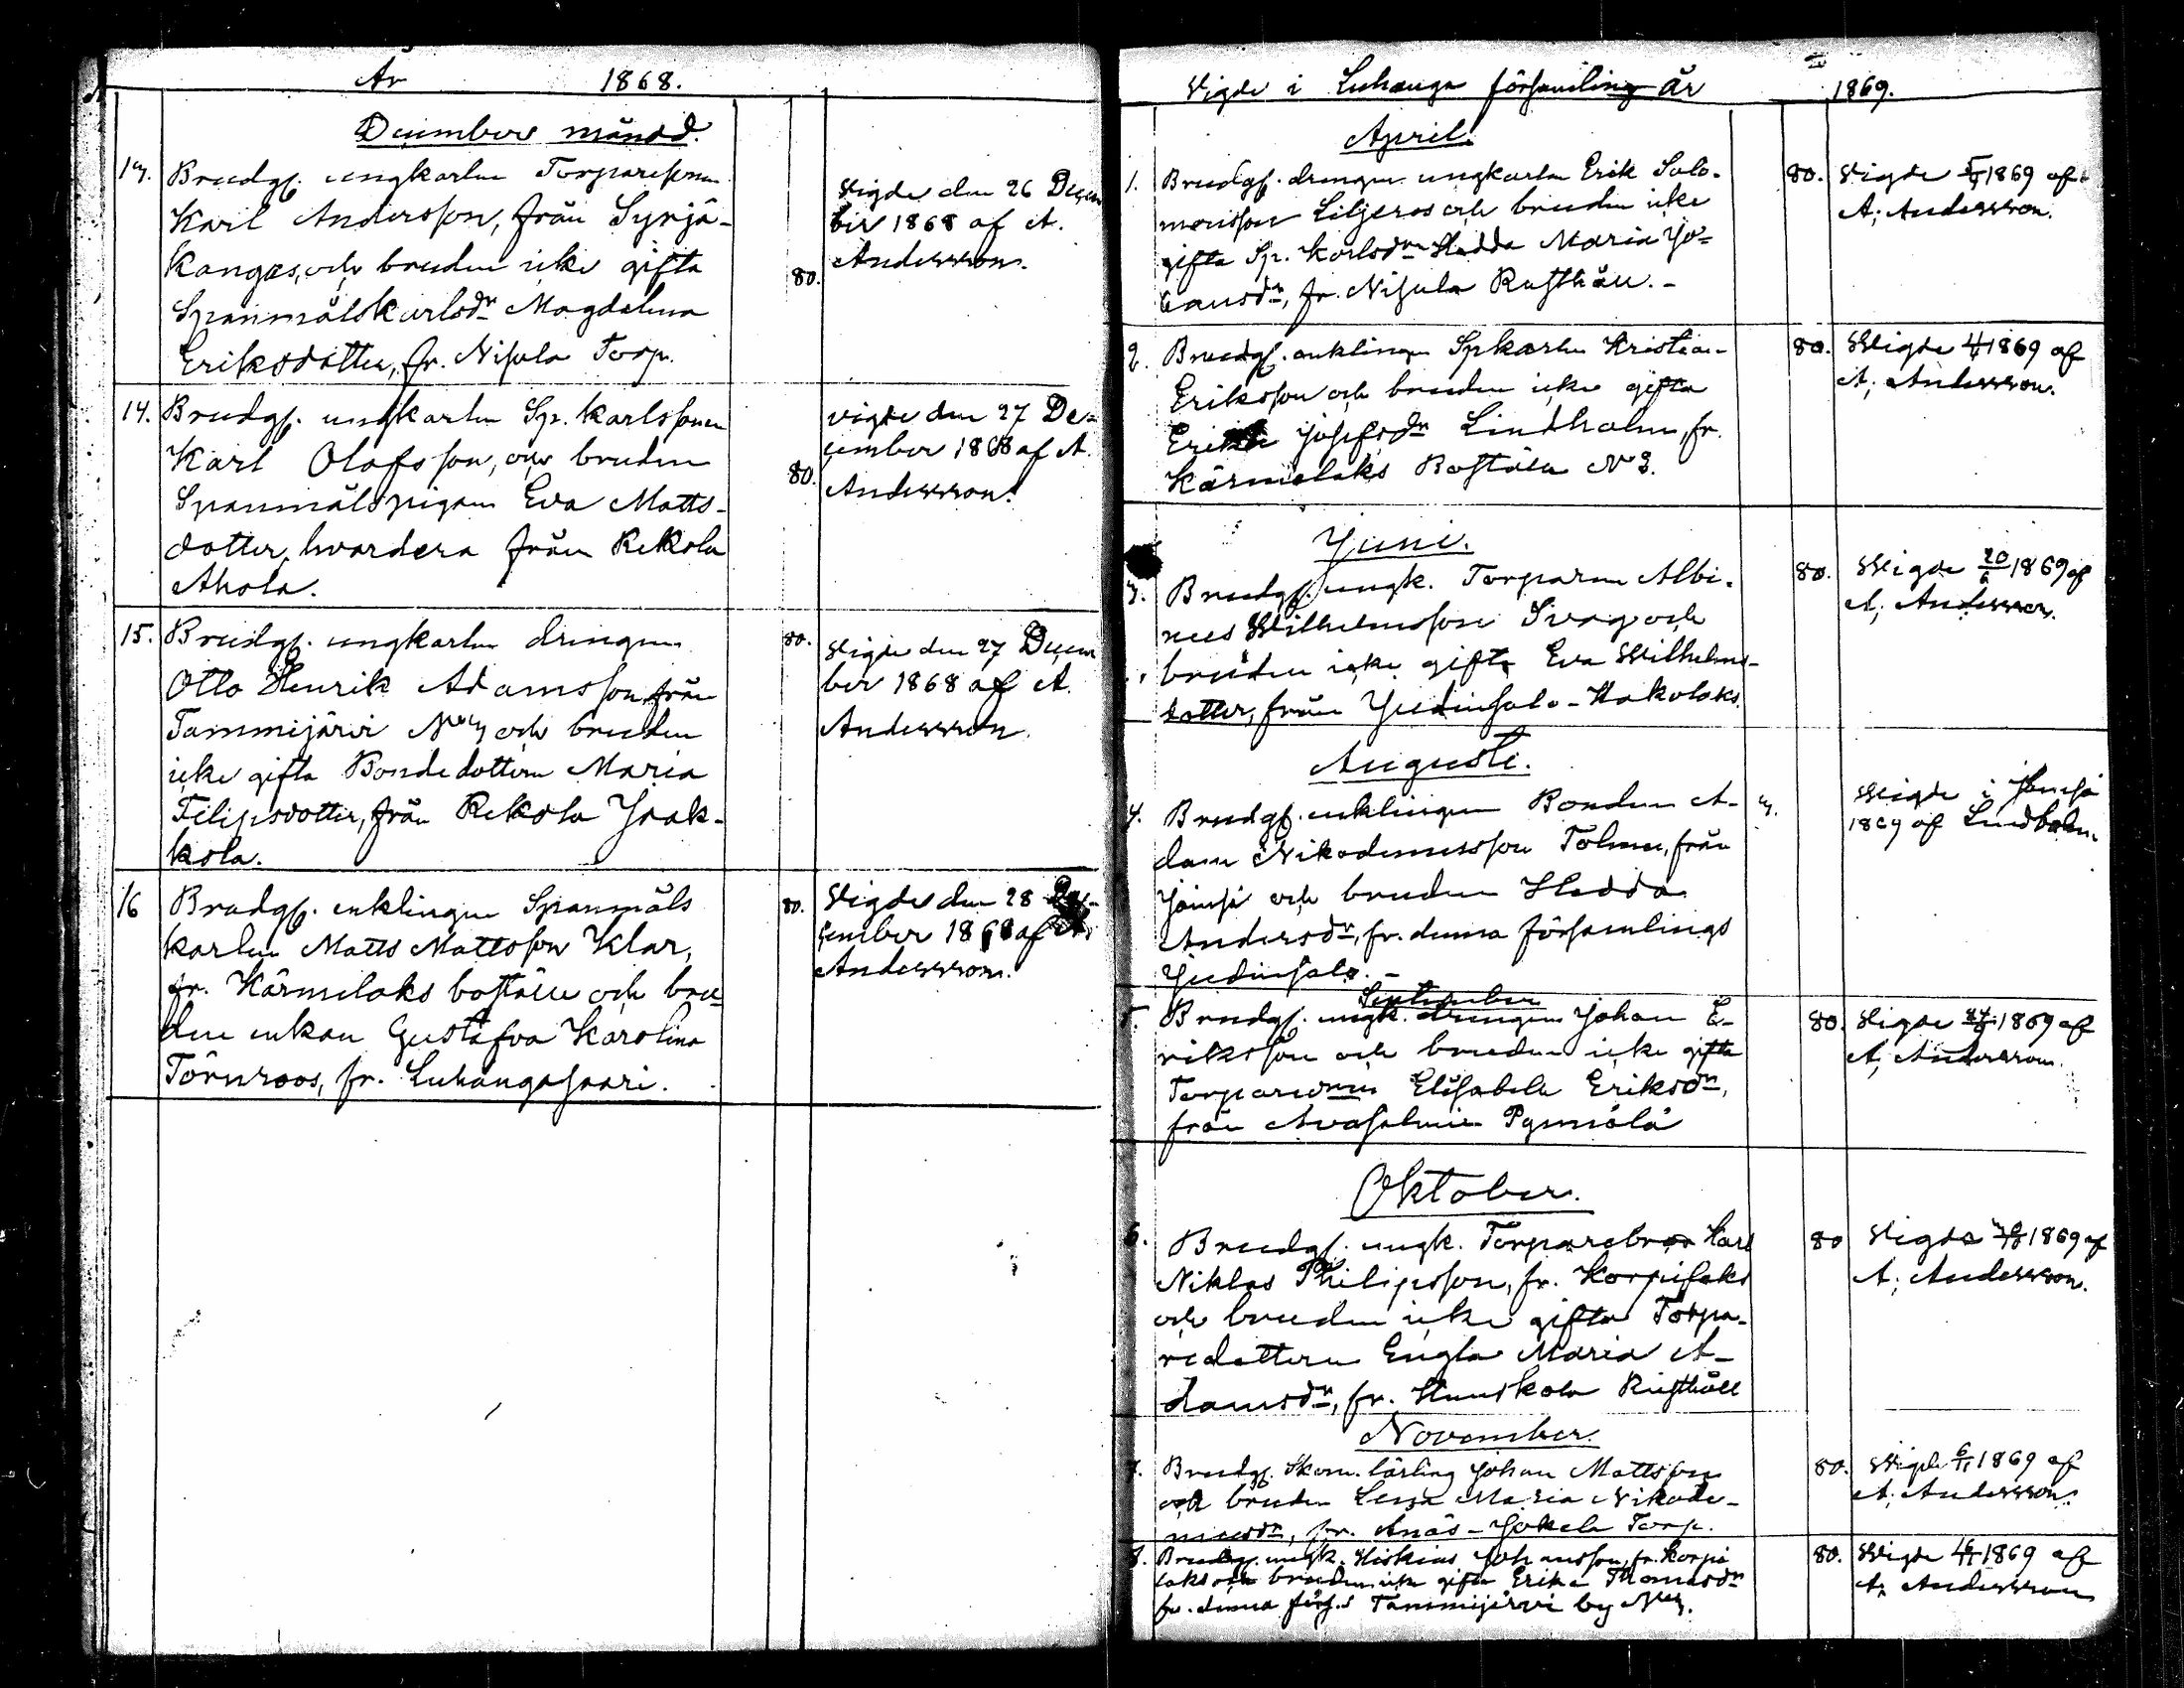 År 1868.
December månad.
13. Brudg. ungkarlen Torparesonen
Karl Andersson, från Syrjä-
kangas, och bruden icke gifta
Spanmålskarlsdr Magdalena
Eriksdotter, fr. Nisula Torp.
80.
Vigde den 26 Decem
ber 1868 af A.
Andersson.
14. Brudg. ungkarlen Sp. karlssonen
Karl Olofsson, och bruden
Spanmålspigan Eva Matts-
dotter, hvardera från Rekola
Ahola.
80.
vigde den 27 De-
cember 1868 af A.
Andersson.
15. Brudg. ungkarlen drengen
Otto Henrik Adamsson från
Tammijärvi No 3 och bruden
icke gifta Bondedottern Maria
Filipsdotter, från Rekola Jaak-
kola.
80.
Vigde den 27 Decem
ber 1868 af A.
Andersson.
16 Brudg. enklingen Spanmåls
karlen Matts Mattsson Klar,
fr. Kärmelaks boställe och bru-
den enkan Gustafva Karolina
Törnroos, fr. Luhangasaari.
80.
Vigde den 28 De-
cember 1868 af A.
Andersson.
Vigde i Luhanga församling År 1869.
April.
1. Brudg. drengen ungkarlen Erik Salo-
monsson Liljeros och bruden icke
gifta Sp. Karlsdr Hedda Maria Jo-
hansdr, fr. Nisula Rusthåll.
80. Vigde 5/4 1869 af
A. Andersson.
2. Brudg. enklingen Spkarlen Kristian
Eriksson och bruden icke gifta
Erika Josefsdr Lindholm, fr.
Kärmelaks Boställe No 3.
80. Vigde 4/4 1869 af
A. Andersson.
Juni.
3. Brudg. ungk. Torparen Albi-
nus Wilhelmsson Svag och
bruden icke gifta Eva Wilhelms-
dotter, från Judinsalo-Hakolaks.
80. Vigde 20/6 1869 af
A. Andersson.
Augusti.
4. Brudg. enklingen Bonden A-
dam Nikodemusson Tolmen, från
Jämsä och bruden Hedda
Andersdr, fr. denna församlings
Judinsalo.
3. Vigde i Jämsä
1869 af Lindholm.
September
5. Brudg. ungk. drengen Johan E-
riksson och bruden icke gifta
Elisabeta Eriksdr,
från Avasalmi Pynnölä
80. Vigde 1869 af
A. Andersson.
Oktober.
6. Brudg. ungk. Torparebror Karl
Niklas Philipsson, fr. Korpilaks
och bruden icke gifta Torpa-
redottern Engla Maria A-
damsdr, fr. Hunskola Rusthåll
80 Vigde 1869 af
A. Andersson.
November.
7. Brudg. Skom. lärling Johan Mattsson
och bruden Lena Maria Nikode-
musdr, fr. Anäs-Jokela Torp.
80. Vigde 6/11 1869 af
A. Andersson.
8. Brudg. ungk. Hiskias Johansson, fr. Korpi
laks och bruden icke gifta Erika Thomasdr
fr. denna förs.s Tammijärvi by No 3.
80. Vigde 1869 af
A. Andersson